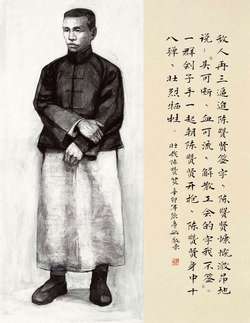 敌人再三逼迫陈赞贤签字，陈赞贤慷慨激昂地
说：头可断，血可流，解散工会的字我不签。
一群刽子手一起朝陈赞贤开枪，陈赞贤身中十
八弹，壮烈牺牲。
壮哉陈赞贤